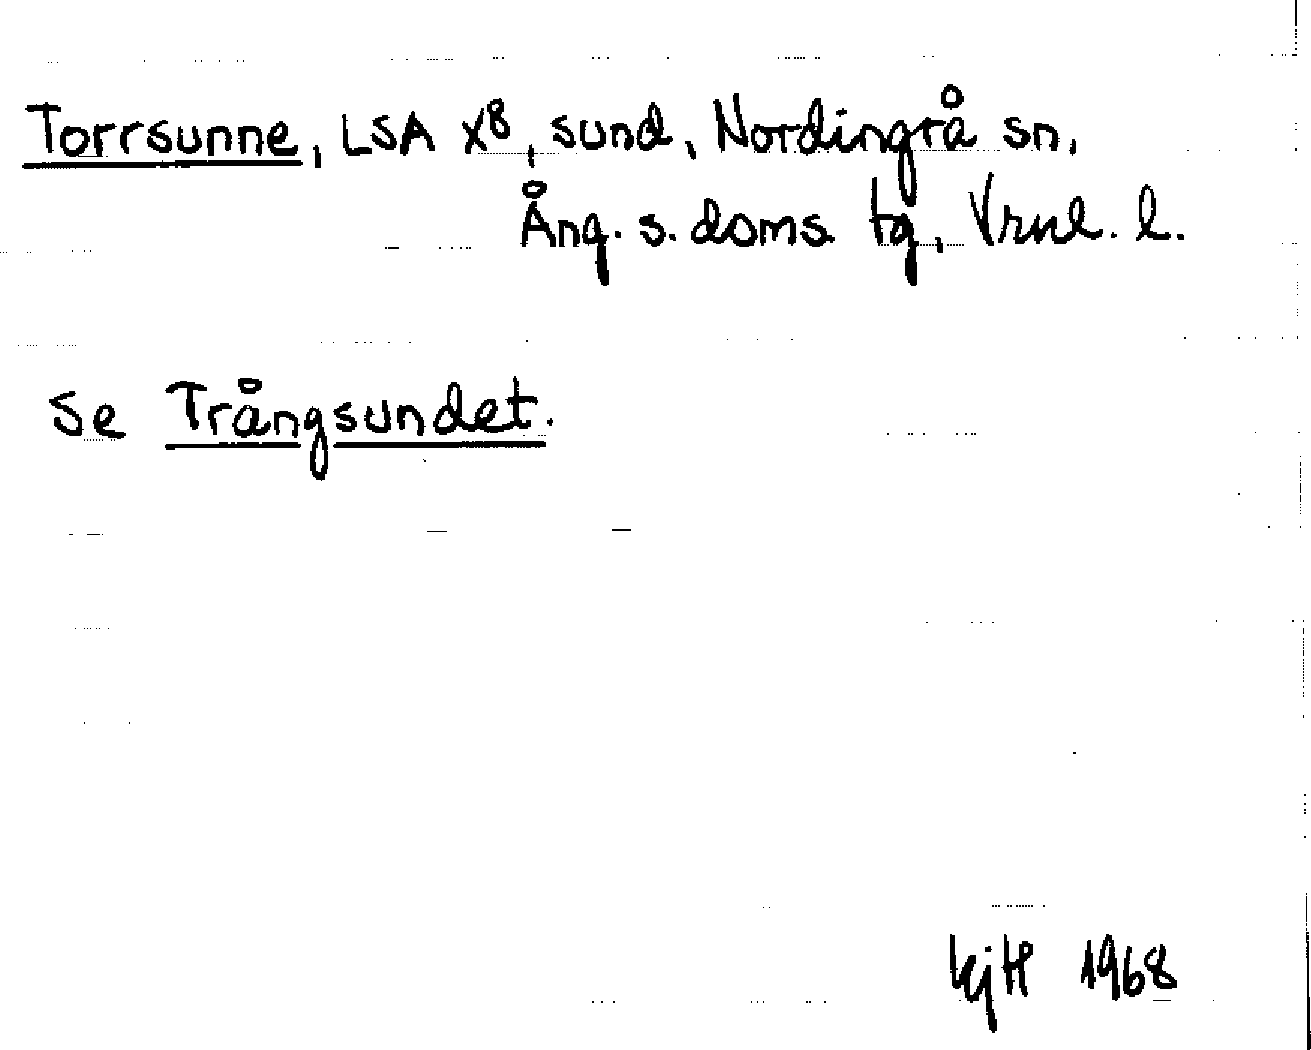 Torrsunne, LSA X8, sund, Nordingrå sn,
Ång. s. doms. tg, Vrnl. l.
Se Trångsundet.
1968